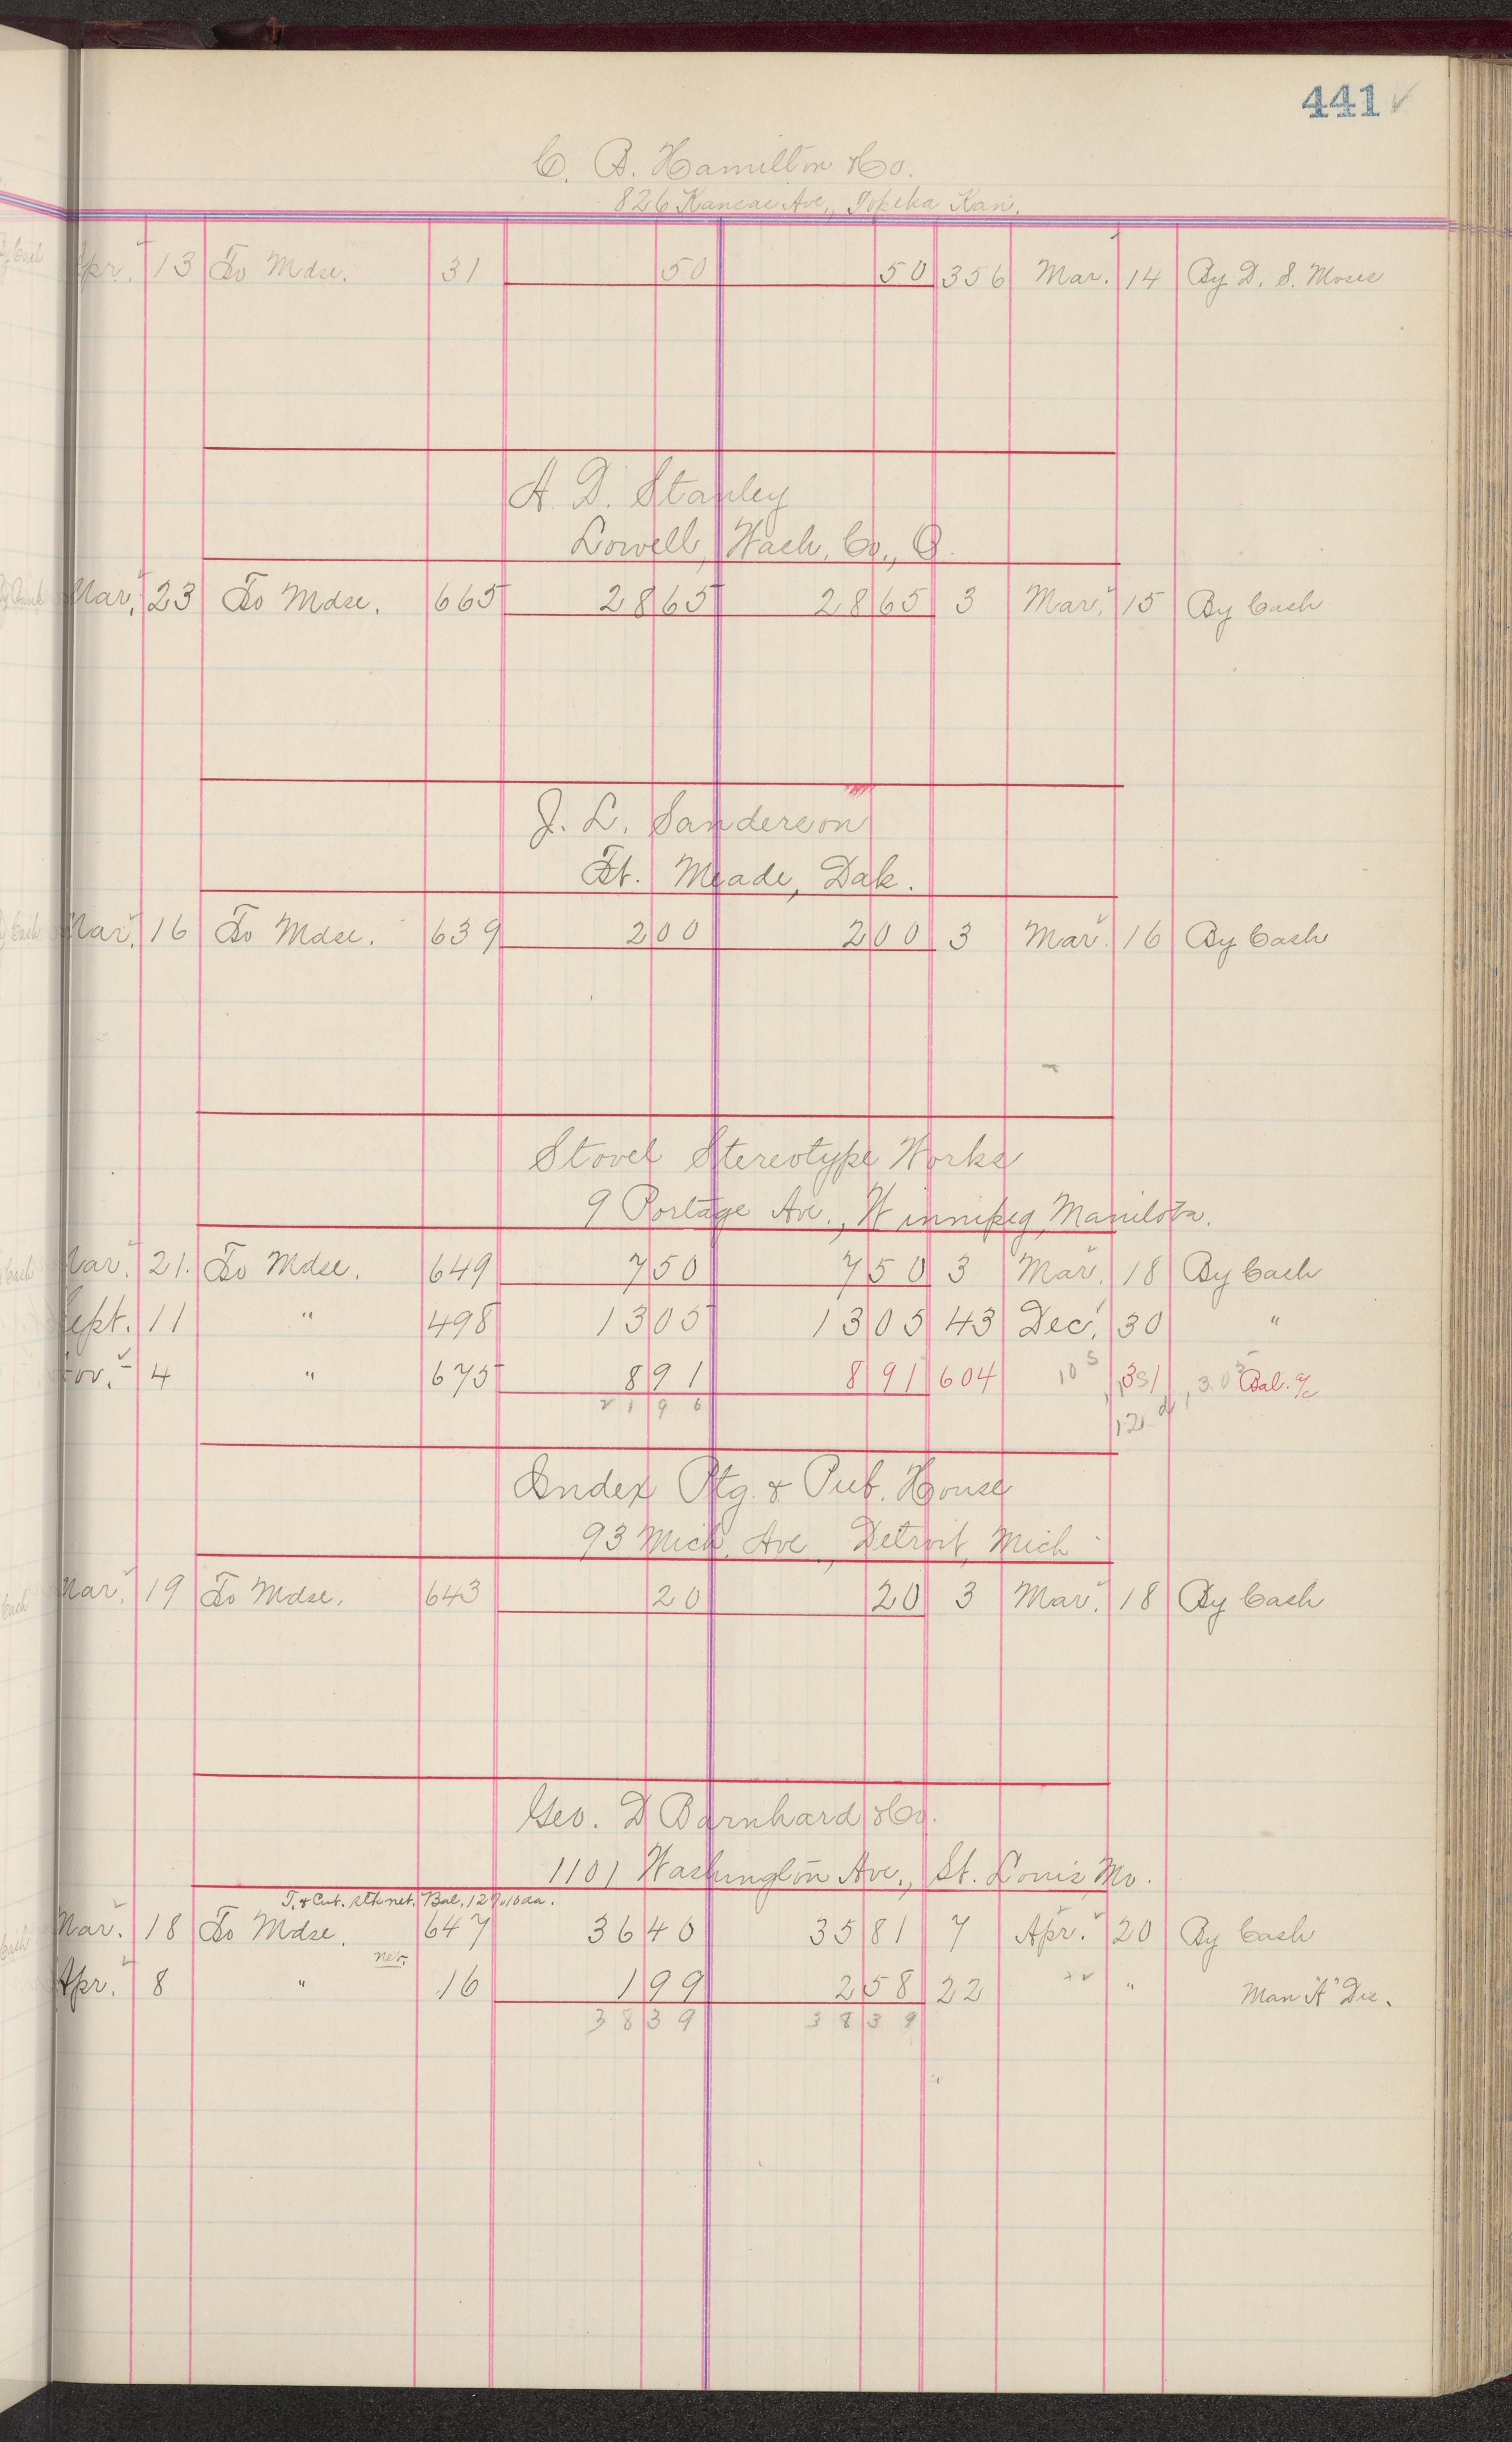 441 ✓
C. B. Hamilton & Co.
826 Kansas Ave., Topeka Kan.
Apr. 13 To Mdse. 31 50 50 356 Mar. 14 By D. S. Moses
A. D. Stanley
Lowell, Wash. Co., O.
Mar. 23 To Mdse. 665 28 65 28 65 3 Mar. 15 By Cash
J. L. Sanderson
Ft. Meade, Dak.
Mar. 16 To Mdse. 639 2 00 2 00 3 Mar. 16 By Cash
Stovel Stereotype Works
9 Portage Ave., Winnipeg, Manitoba.
Mar. 21. To Mdse. 649 7 50 7 50 3 Mar. 18 By Cash
Sept. 11 " 498 13 05 13 05 43 Dec. 30 "
Nov. 4 " 675 8 91 8 91 604 31 Bal. a/c
21 96
Index Ptg. & Pub. House
93 Mich. Ave., Detroit, Mich
Mar. 19 To Mdse. 643 20 20 3 Mar. 18 By Cash
Geo. D Barnhard & Co.
1101 Washington Ave., St. Louis Mo.
Mar. 18 To Mdse. 647 36 40 35 81 7 Apr. 20 By Cash
net.
Apr. 8 " 16 1 99 2 58 22 " " Man "A" Dis.
38 39 38 39